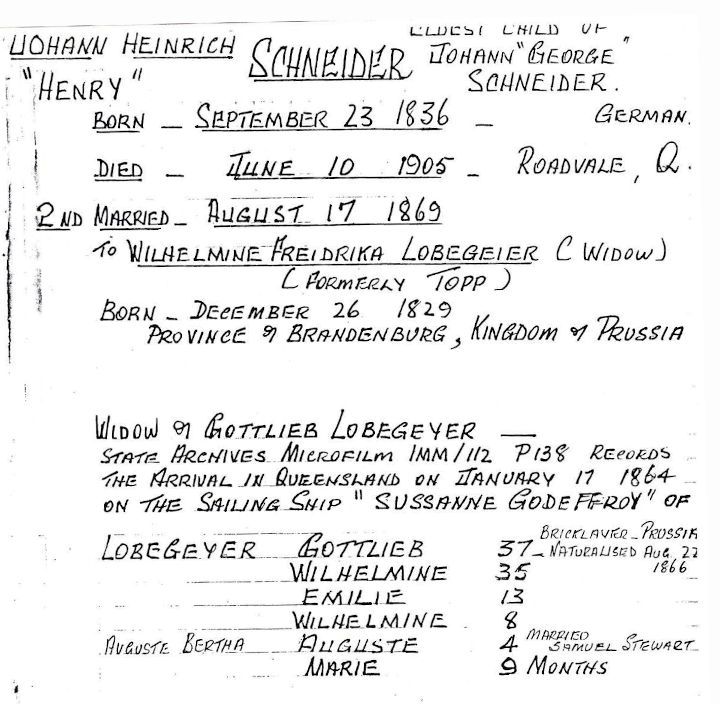 ELDEST CHILD OF
JOHANN HEINRICH SCHNEIDER JOHANN "GEORGE"
"HENRY" SCHNEIDER.
BORN – SEPTEMBER 23 1836 – GERMAN.
DIED – JUNE 10 1905 – ROADVALE, Q.
2ND MARRIED – AUGUST 17 1869
TO WILHELMINE FREIDRIKA LOBEGEIER (WIDOW)
(FORMERLY TOPP)
BORN – DECEMBER 26 1829
PROVINCE OF BRANDENBURG, KINGDOM OF PRUSSIA
WIDOW OF GOTTLIEB LOBEGEYER —
STATE ARCHIVES MICROFILM IMM/112 P138 RECORDS
THE ARRIVAL IN QUEENSLAND ON JANUARY 17 1864
ON THE SAILING SHIP "SUSSANNE GODEFFROY" OF
LOBEGEYER GOTTLIEB 37 – BRICKLAYER – PRUSSIA
NATURALISED AUG 22
1866
WILHELMINE 35
EMILIE 13
WILHELMINE 8
AUGUSTE BERTHA AUGUSTE 4 MARRIED
SAMUEL STEWART
MARIE 9 MONTHS